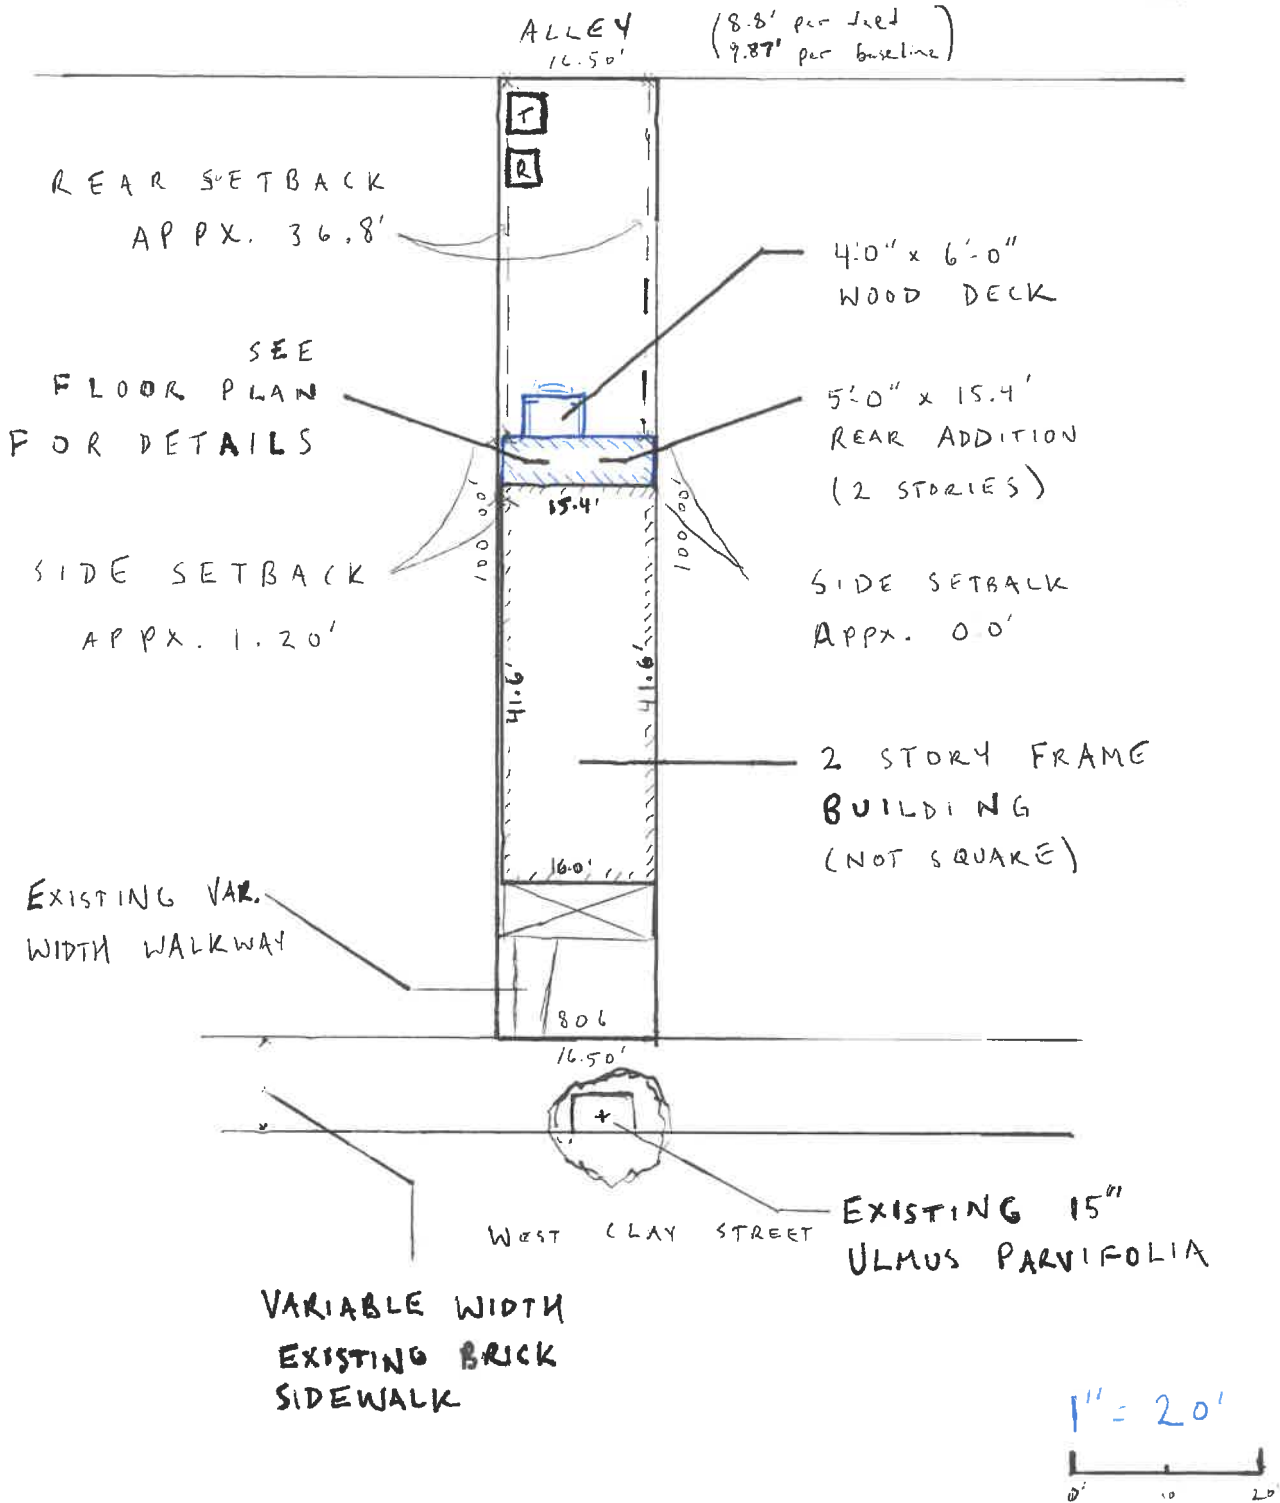 ALLEY
16.50'
(8.8' per deed
9.87' per baseline)
T
R
REAR SETBACK
APPX. 36.8'
4'-0" x 6'-0"
WOOD DECK
SEE
FLOOR PLAN
FOR DETAILS
5'-0" x 15.4'
REAR ADDITION
(2 STORIES)
15.4'
100.00'
100.00'
SIDE SETBACK
APPX. 1.20'
SIDE SETBACK
APPX. 0.0'
41.6'
41.6'
2 STORY FRAME
BUILDING
(NOT SQUARE)
16.0'
EXISTING VAR.
WIDTH WALKWAY
806
16.50'
WEST CLAY STREET
EXISTING 15"
ULMUS PARVIFOLIA
VARIABLE WIDTH
EXISTING BRICK
SIDEWALK
1" = 20'
0' 10 20'